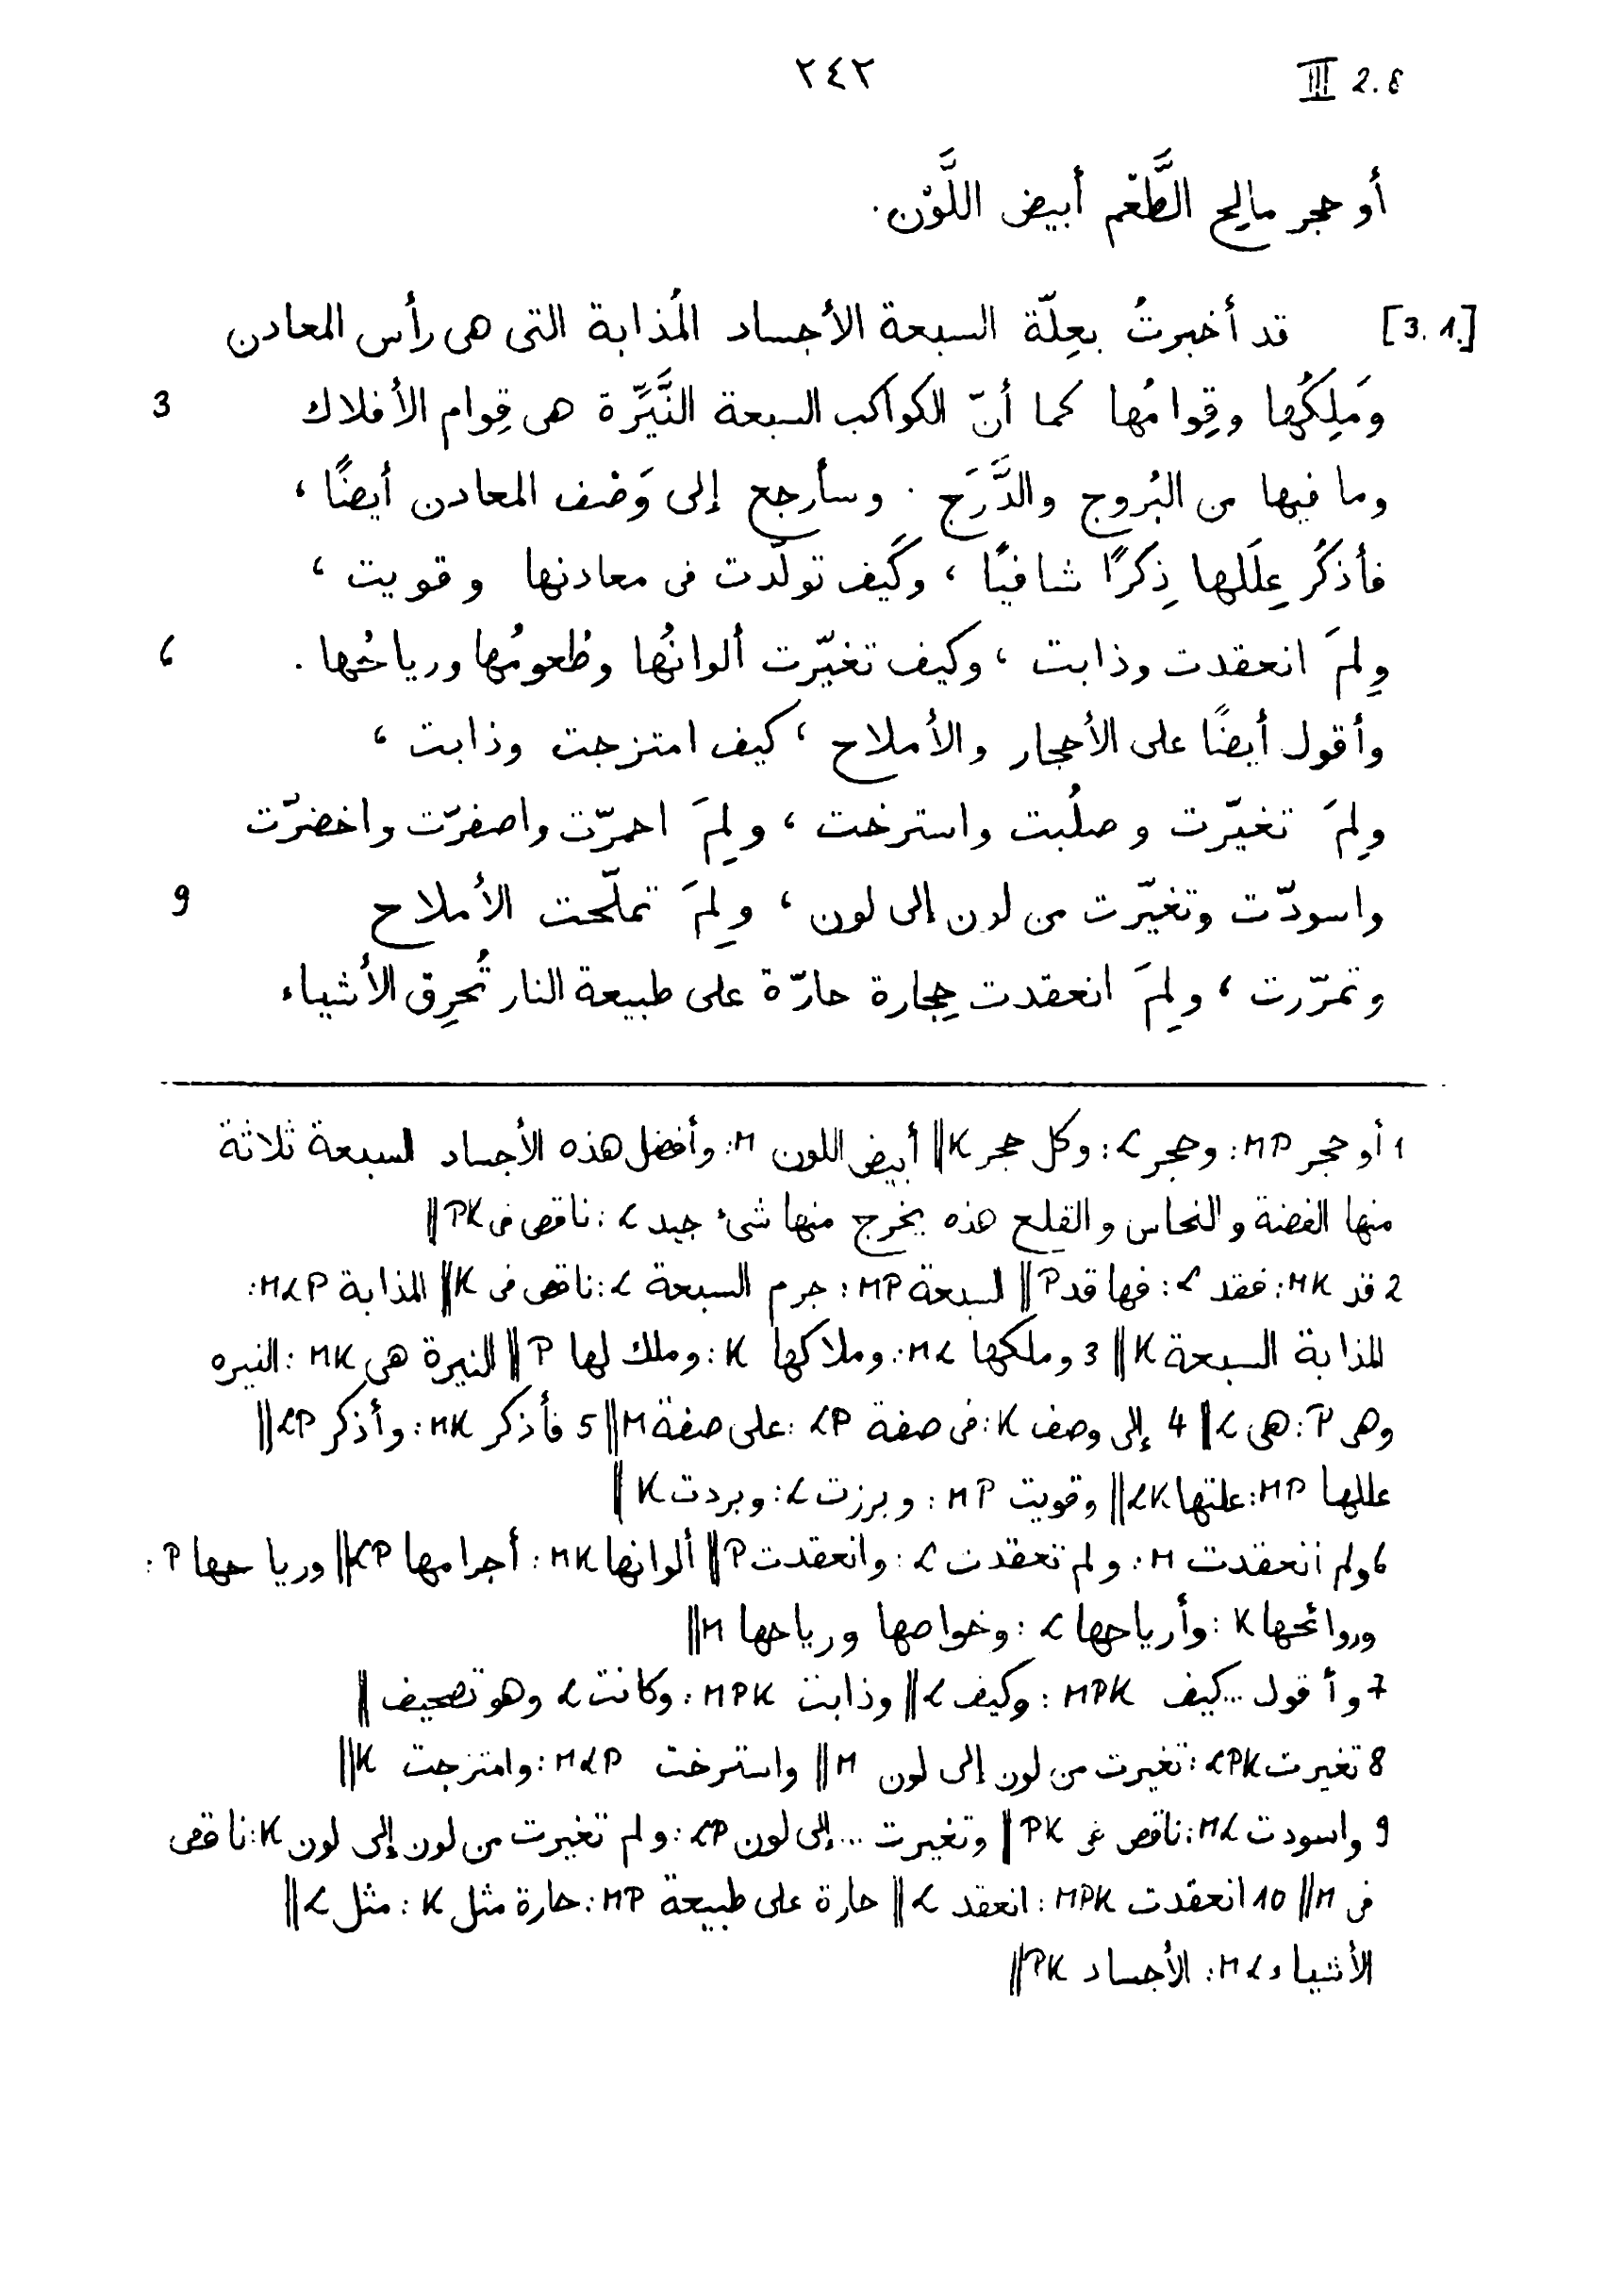 ٢٤٢ III 2.8
أو حجر مالح الطَّعْم أبيض اللَّوْن.
[3.1.] قد أخبرتُ بعِلّة السبعة الأجساد المُذابة التى هى رأس المعادن
ومَلِكُها وقِوامُها كما أنّ الكواكب السبعة النَّيِّرة هى قِوام الأفلاك 3
وما فيها من البُروج والدَّرَج . وسأرجع إلى وَصْف المعادن أيضًا ،
فأذكُر عِلَلها ذِكرًا شافيًا ، وكَيف تولّدت فى معادنها وقويت ،
ولِمَ انعقدت وذابت ، وكيف تغيّرت ألوانُها وطُعومُها ورياحُها . 6
وأقول أيضًا على الأحجار والأملاح ، كيف امتزجت وذابت ،
ولِمَ تغيّرت وصلُبت واسترخت ، ولِمَ احمرّت واصفرّت واخضرّت
واسودّت وتغيّرت من لون إلى لون ، ولِمَ تملّحت الأملاح 9
وتمرّرت ، ولِمَ انعقدت حِجارة حارّة على طبيعة النار تُحرِق الأشياء
1 أو حجر MP: وحجر L: وكل حجر K‖ أبيض اللون M: وأفضل هذه الأجساد السبعة ثلاثة
منها الفضة والنحاس والقلع هذه يخرج منها شىء جيد L: ناقص فى PK‖
2 قد MK: فقد L: فها قد P‖ السبعة MP: جرم السبعة L: ناقص فى K‖ المذابة MLP:
المذابة السبعة K‖ 3 وملكها ML: وملاكها K: وملك لها P‖ النيرة هى MK: النيره
وهى P: هى L‖ 4 إلى وصف K: فى صفة LP: على صفة M‖ 5 فأذكر MK: وأذكر LP‖
عللها MP: علتها LK‖ وقويت MP: وبرزت L: وبردت K‖
6 ولم انعقدت M: ولم تعقدت L: وانعقدت P‖ ألوانها MK: أجرامها LP‖ ورياحها P:
وروائحها K: وأرياحها L: وخواصها ورياحها M‖
7 وأقول...كيف MPK: وكيف L‖ وذابت MPK: وكانت L وهو تصحيف‖
8 تغيرت LPK: تغيرت من لون إلى لون M‖ واسترخت MLP: وامتزجت K‖
9 واسودت ML: ناقص فى PK‖ وتغيرت...إلى لون LP: ولم تغيرت من لون إلى لون K: ناقص
فى M‖ 10 انعقدت MPK: انعقد L‖ حارة على طبيعة MP: حارة مثل K: مثل L‖
الأشياء ML: الأجساد PK‖